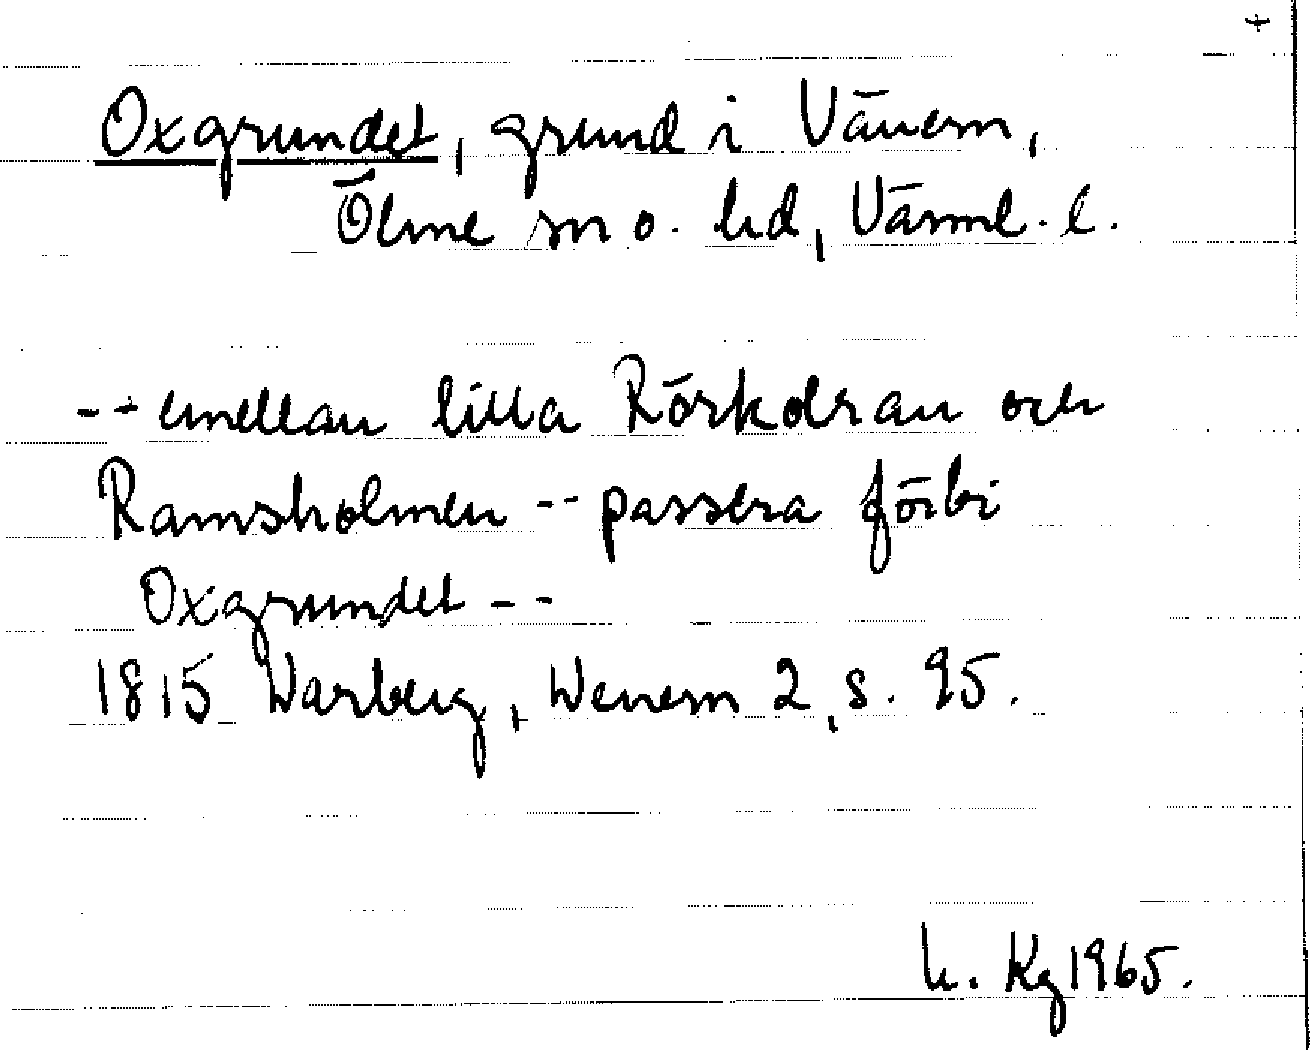 Oxgrundet, grund i Vänern,
Ölme sn o. hd, Värml. l.
-- emellan lilla Rörkobran och
Ramsholmen -- passera förbi
Oxgrundet --
1815 Warberg, Wenern 2, s. 95.
h. Kg 1965.